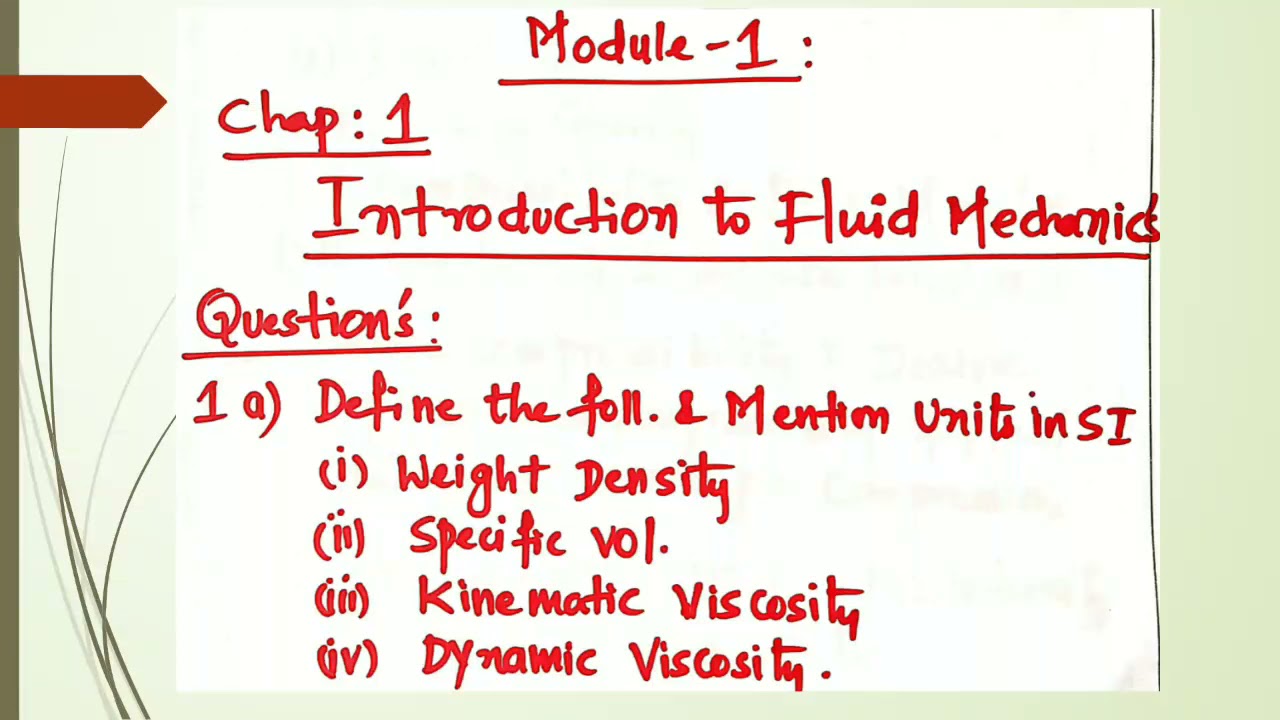 Module-1:
Chap: 1
Introduction to Fluid Mechanics
Question's:
1 a) Define the foll. & Mention Units in SI
(i) Weight Density
(ii) Specific Vol.
(iii) Kinematic Viscosity
(iv) Dynamic Viscosity.